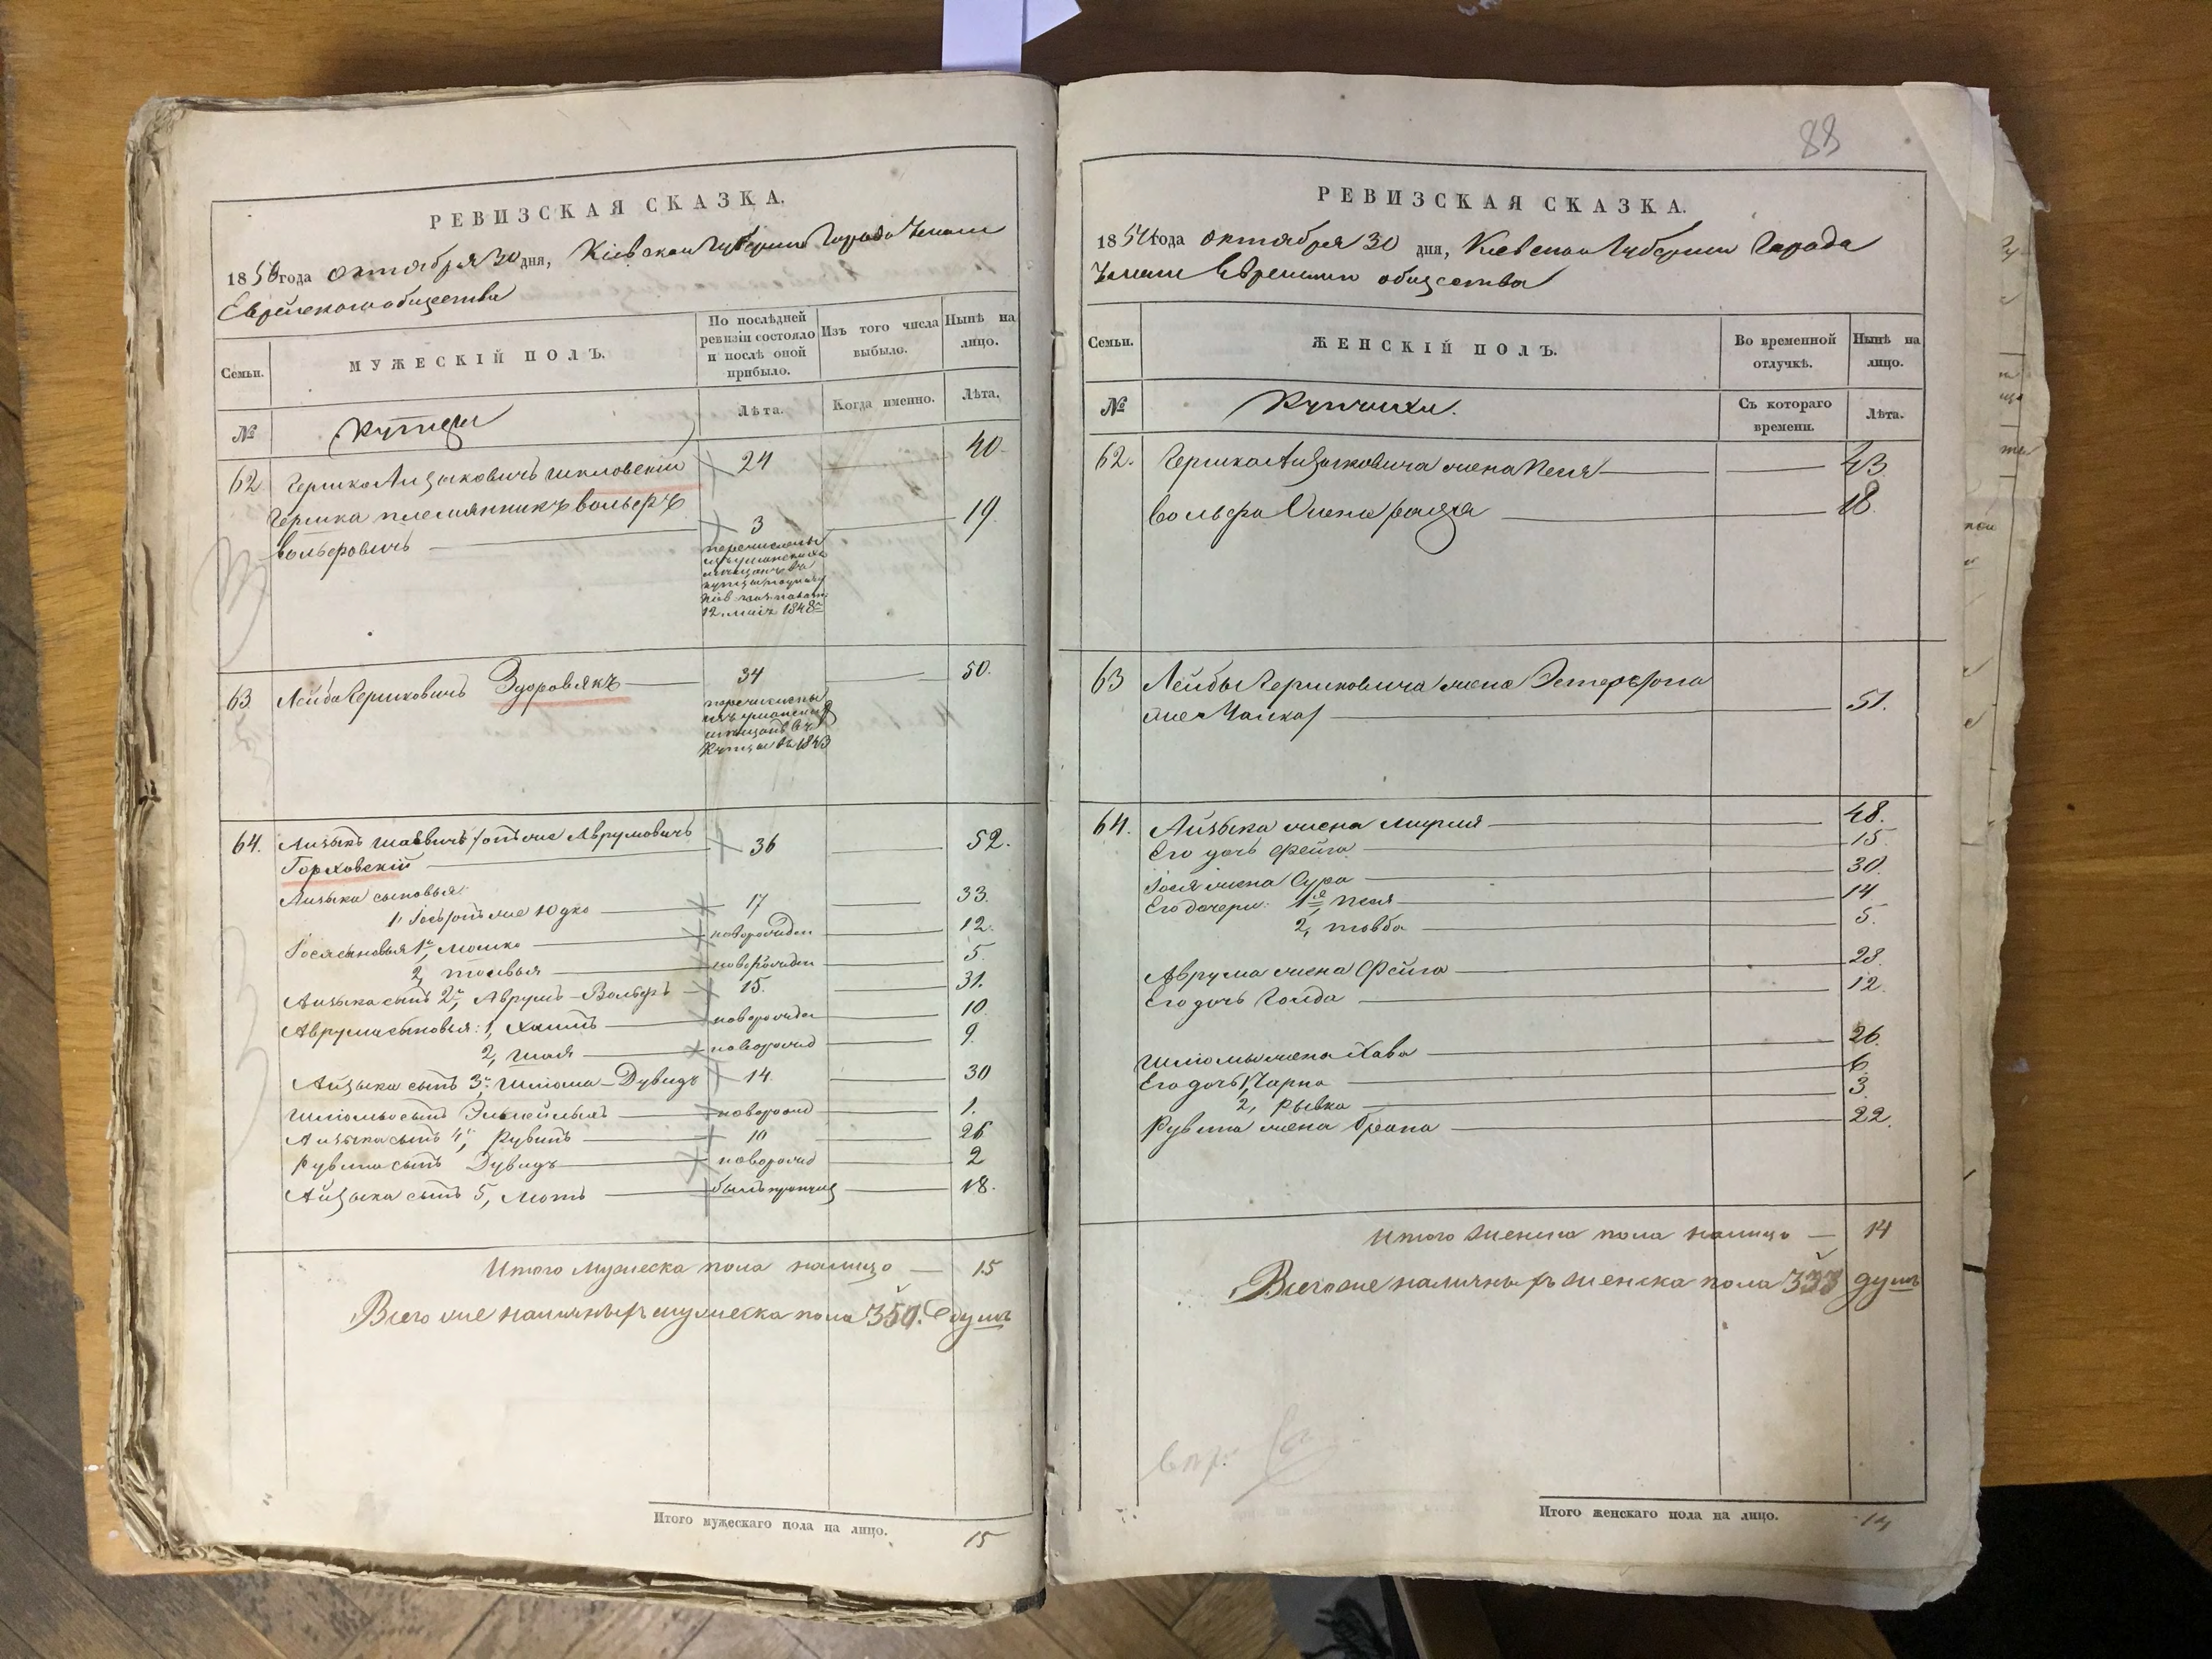 РЕВИЗСКАЯ СКАЗКА.
1850 года октября 30 дня, Кіевской Губерніи Города Умани
Еврейскаго общества
Семьи.
МУЖЕСКІЙ ПОЛЪ.
По послѣдней ревизіи состояло и послѣ оной прибыло.
Изъ того числа выбыло.
Нынѣ на лицо.
№
Купцы
Лѣта.
Когда именно.
Лѣта.
62 Гершко Аизыковичъ Шкловскій 24 40
Гершка племянникъ Вольфъ
Вольфовичъ 3 19
перечислены
изъ уманскихъ
мещанъ въ
купцы
12 маія 1848
63. Лейба Гершковичъ Здоровякъ 34 50.
перечислены
изъ уманскихъ
мещанъ въ
Купцы въ 1843
64. Аизыкъ Шаевичъ онъ же Аврумовичъ 36 52.
Горховскій
Аизыка сыновья:
1, Іось онъ же Юдко 17 33.
Іося сыновья 1й, Мошко новорожден 12.
2, Товья новорожден 5.
Аизыка сынъ 2й, Аврумъ-Вольфъ 15. 31.
Аврума сыновья: 1, Хаимъ новорожден 10.
2, Шая новорожд 9.
Айзыка сынъ 3й, Шліома-Дувидъ 14. 30
Шліомы сынъ новорожд 1.
Аизыка сынъ 4й, Рувинъ 10 26
Рувина сынъ Дувидъ новорожд 2
Айзыка сынъ 5, Мотъ былъ 18.
Итого мужеска пола налицо — 15
Всего же наличныхъ мужеска пола 350. душъ
Итого мужескаго пола на лицо.
15
88
РЕВИЗСКАЯ СКАЗКА.
18 года октября 30 дня, Кіевской Губерніи Города
Умани Еврейскаго общества
Семьи.
ЖЕНСКІЙ ПОЛЪ.
Во временной отлучкѣ.
Нынѣ на лицо.
№
Купчихи.
Съ котораго времени.
Лѣта.
62. Гершка Аизыковича жена Песя 43
Вольфа жена 18.
63 Лейбы Гершковича жена Эстеръ она
же Чайка 51.
64. Айзыка жена Мирля 48.
Его дочь Фейга 15.
Іося жена Сура 30.
Его дочери: 1я, Песя 14.
2, Товба 5.
Аврума жена Фейга 28.
Его дочь Голда 12.
Шліомы жена Хава 26.
Его дочь 1, Чарна 6.
2, Рывка 3.
Рувина жена 22.
Итого женска пола налицо — 14
Всего же наличныхъ женска пола 333 душъ
Итого женскаго пола на лицо.
14